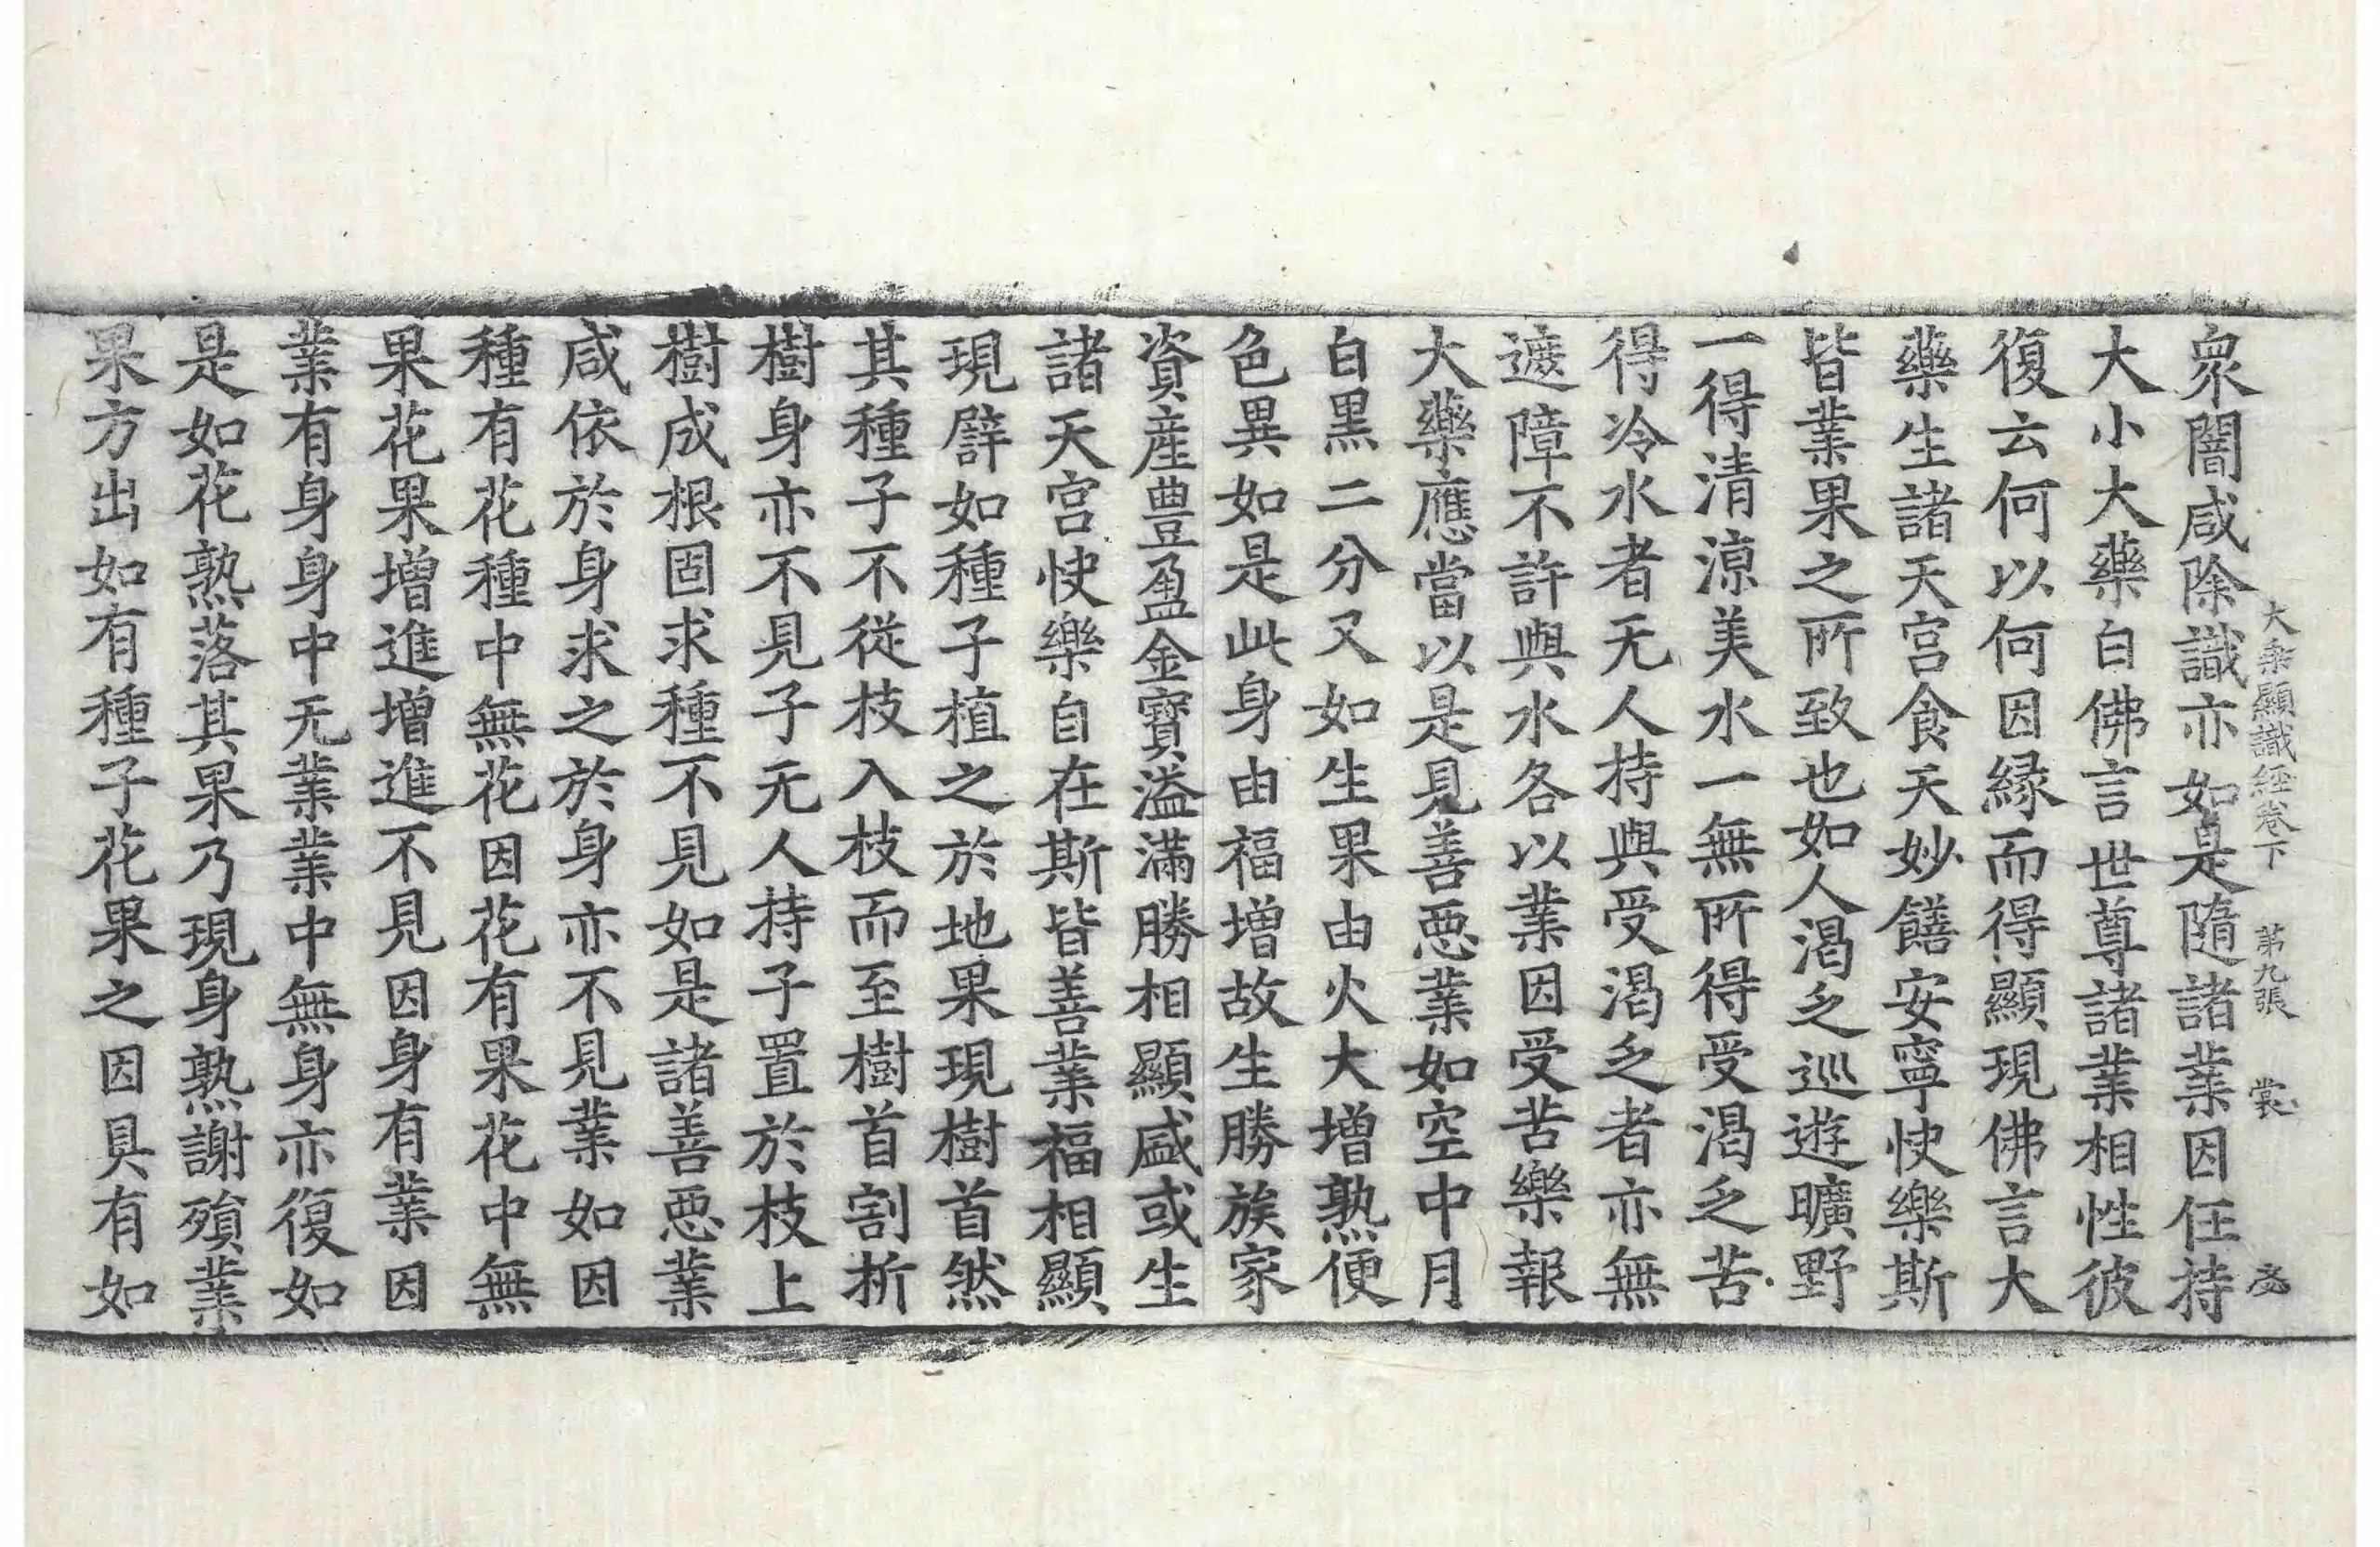 大乘顯識經卷下 第九張 裳
衆闇咸除識亦如是隨諸業因任持
大小大藥白佛言世尊諸業相性彼
復云何以何因緣而得顯現佛言大
藥生諸天宮食天妙饍安寧快樂斯
皆業果之所致也如人渴乏巡遊曠野
一得清涼美水一無所得受渴乏苦
得冷水者无人持與受渴乏者亦無
遮障不許與水各以業因受苦樂報
大藥應當以是見善惡業如空中月
白黑二分又如生果由火大增熟便
色異如是此身由福增故生勝族家
資産豊盈金寶溢滿勝相顯盛或生
諸天宮快樂自在斯皆善業福相顯
現譬如種子植之於地果現樹首然
其種子不從枝入枝而至樹首割析
樹身亦不見子无人持子置於枝上
樹成根固求種不見如是諸善惡業
咸依於身求之於身亦不見業如因
種有花種中無花因花有果花中無
果花果增進增進不見因身有業因
業有身身中无業業中無身亦復如
是如花熟落其果乃現身熟謝殞業
果方出如有種子花果之因具有如